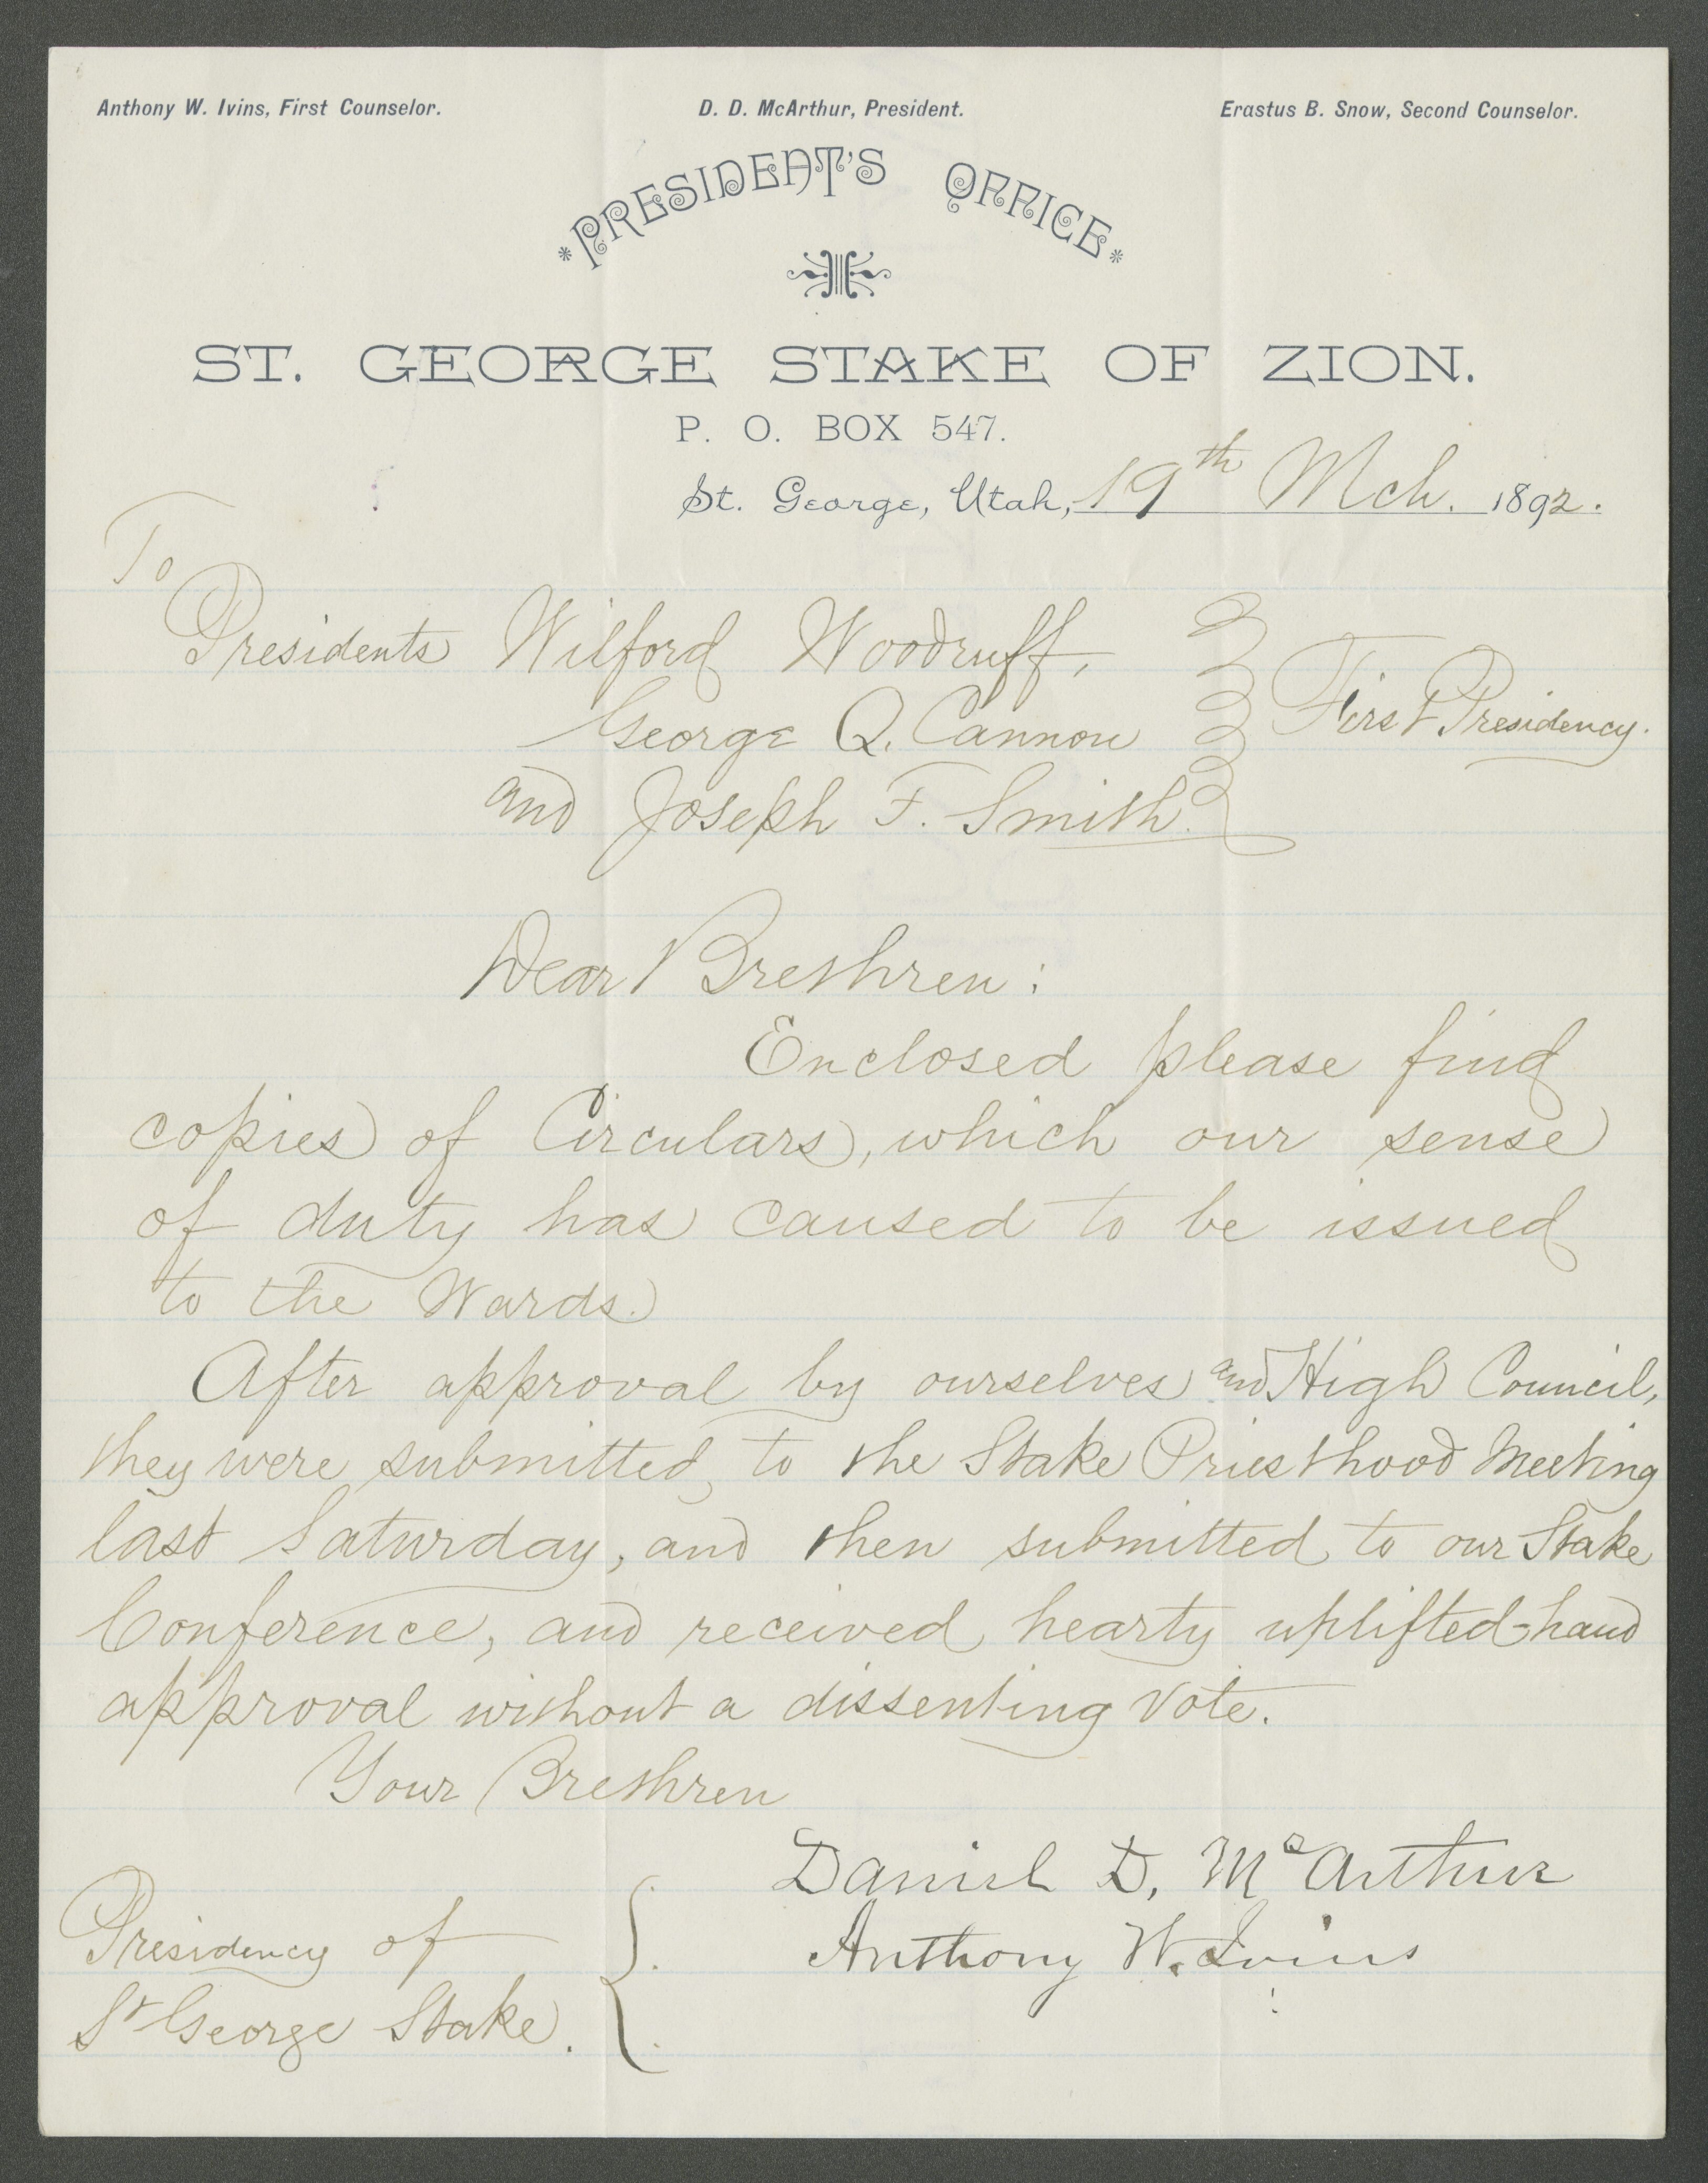 Anthony W. Ivins, First Counselor. D. D. McArthur, President. Erastus B. Snow, Second Counselor.
*PRESIDENT'S OFFICE*
ST. GEORGE STAKE OF ZION.
P. O. BOX 547.
St. George, Utah, 19th Mch. 1892.
To
Presidents Wilford Woodruff,
George Q. Cannon
and Joseph F. Smith.
First Presidency.
Dear Brethren:
Enclosed please find
copies of Circulars, which our sense
of duty has caused to be issued
to the Wards.
After approval by ourselves and High Council,
they were submitted to the Stake Priesthood Meeting
last Saturday, and then submitted to our Stake
Conference, and received hearty uplifted-hand
approval without a dissenting vote.
Your Brethren
Daniel D. McArthur
Anthony W. Ivins
Presidency of
St George Stake.